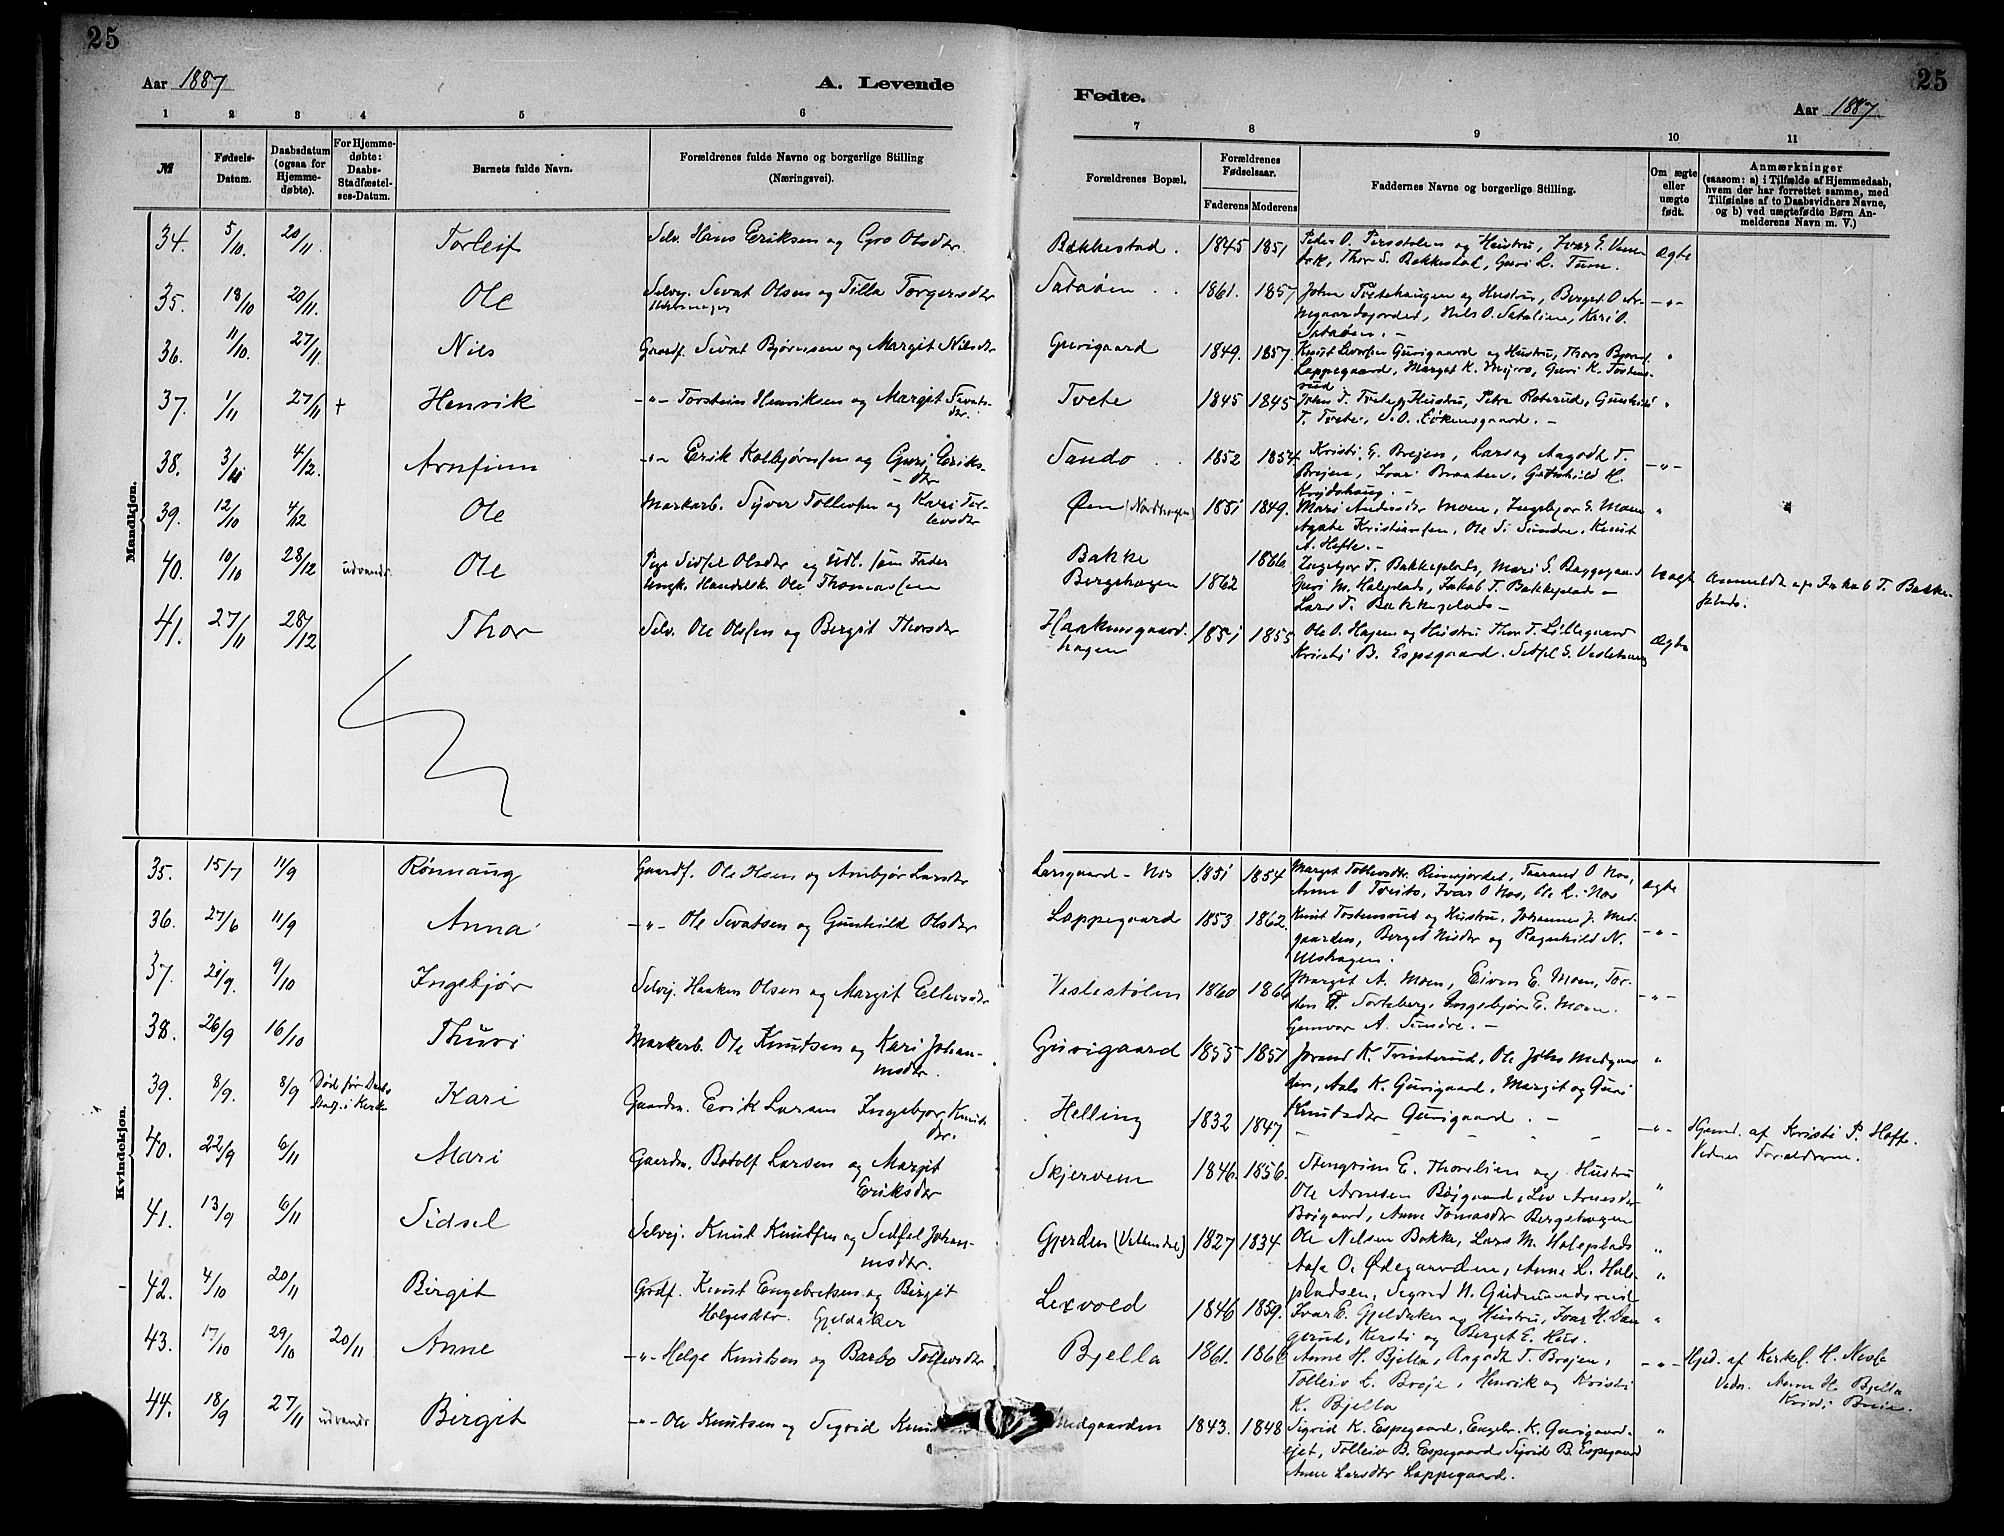 25
25
Aar 1887
A. Levende
Fødte.
Aar 1887
1 2 3 4 5 6 7 8 9 10 11
№
Fødsels-Datum.
Daabsdatum (ogsaa for Hjemmedøbte).
For Hjemmedøbte: Daabs-Stadfæstelses-Datum.
Barnets fulde Navn.
Forældrenes fulde Navne og borgerlige Stilling (Næringsvei).
Forældrenes Bopæl.
Forældrenes Fødselsaar.
Faderens Moderens
Faddernes Navne og borgerlige Stilling.
Om ægte eller uægte født.
Anmærkninger
(saasom: a) i Tilfælde af Hjemmedaab, hvem der har forrettet samme, med Tilføielse af to Daabsvidners Navne, og b) ved uægtefødte Børn Anmelderens Navn m. V.)
Mandkjøn.
34. 5/10 20/11 Torleif Selv. Hans Eriksen og Gro Olsdtr. Bakkestad. 1845 1851 Peder O. Perstølen og Hustru, Ivar E. Thor S. Bakkestad, Guri L. Ægte
35. 18/10 20/11 Ole Selvej. Sivat Olsen og Tilla Torgersdtr 1861. 1857 John Tvetehaugen og Hustru, Berget O. Nils O. Sataslien, Kari O. Sataøen. -"-
36. 11/10. 27/11 Nils Gaardf. Sivat Bjørnsen og Margit Nilsdtr Gurigaard 1849. 1857. Knut Gurigaard og Hustru, Thors Lappegaard, Margit K. Guri K. Tostensrud "
37. 1/11 27/11 + Henrik -"- Torstein Henriksen og Margit Sivatsdtr. Tvete 1845 1845 John T. Tvete og Hustru, Gunhild T. Tvete, S. O. Løkensgaard. - "
38. 3/11 4/12. Arnfinn -"- Erik Kolbjørnsen og Guri Eriksdtr Sando 1852 1854 Kristi G. Brejen, Lars og Aagodt T. Brejen, Ivar Braaten, Gunhild H. -"-
39. 12/10 4/12 Ole Markarb. Syver Tollevsen og Kari Tollevsdtr Øen (Nordhagen) 1851 1849. Mari Andersdtr Moen, Ingebjor E. Moen Agate Kristiansen, Ole S. Sundre, Knut A. Hefte. - "
40. 10/10 28/12 udvandr. Ole Pige Sidsel Olsdtr og Udl. som Fader Ungk. Handelsk. Ole Thomassen Bakke Bergehagen 1862 1866 Ingebjor T. Bakkeplads, Mari S. Baggegaard Guri M. Haleplads, Jakob T. Bakkeplads - Lars T. Bakkeplads - Uægte Anmeldt af Jakob T. Bakkeplads.
41. 27/11 28/12 Thor Selv. Ole Olsen og Birgit Thorsdtr Haakensgaardhagen 1851 1855 Ole O. Hagen og Hustru Thor T. Lillegaard Kristi B. Espegaard. Sidsel S. Ægte
Kvindekjøn.
35. 15/7 11/9 Rønnaug Gaardf. Ole Olsen og Arnbjør Larsdtr Larsgaard - Nos 1851 1854 Marget Tollevsdtr. Rimejordet, Taarand O Nos, Anne O Tveito, Ivar O Nos, Ole L. Nos ægte
36. 27/6 11/9 Anna -"- Ole Sivatsen og Gunhild Olsdtr Lappegaard 1853 1862. Knut Tostensrud og Hustru, Johannes J. Medgaarden, Berget Nilsdtr og Ragnhild N. Ulshagen. -"-
37. 21/9. 9/10 Ingebjør Selvej. Haaken Olsen og Margit Ellevsdtr Veslestølen 1860 1866 Margit A. Moen, Eivin E. Moen, Ingebjør E. Moen. Gunvor A. Sundre. - -"-
38. 26/9 16/10 Thuri Markarb. Ole Knutsen og Kari Johannesdtr. Gurigaard 1855 1851 Jorand K. Tvisterud, Ole Johs Medgaarden, Asle K. Gurigaard, Margit og Guri Knutsdtr Gurigaard. - "
39. 8/9. 8/9 Død før Daabs Stadf. i Kirken Kari Gaardm. Erik Larsen Ingebjor Knutsdtr. Helling 1832 1847 - - - - - -"- Hjemd. af Kristi P. Hoff. Vidner Forældrene.
40. 22/9 6/11 Mari Gaardm. Botolf Larsen og Margit Eriksdtr Skjervem 1846. 1856. Stengrim E. Thorslien og Hustru Ole Arnesen Bøjgaard, Liv Arnesdtr Bøigaard, Anne Tomasdtr Bergehagen "
41. 13/9 6/11 Sidsel Selvej. Knut Knutsen og Sidsel Johannesdtr. Gjerden 1827 1834 Ole Nilsen Bakke, Lars M. Haleplads Aase O. Ødegaarden, Anne L. Halepladsen, Sigrid N. "
42. 4/10 20/11 Birgit Grdf. Knut Engebretsen og Birgit Helgesdtr. Gjeldaker Lexvold 1846 1859. Ivar E. Gjeldaker og Hustru, Ivar H. Kersti og Berget E. "
43. 17/10 29/10 20/11 Anne -"- Helge Knutsen og Barbo Tollevsdtr Bjella 1861. Anne H. Bjella, Aagodt T. Brejen, Tolleiv L. Breje, Henrik og Kristi K. Bjella -"- Hjd. af Kirkes. H. Vidn. Anne H. Bjella Kristi
44. 18/9 27/11 udvandr Birgit -"- Ole Knutsen og Sigrid Medgaarden 1843. 1848 Sigrid K. Espegaard, Engebr. K. Gurigaard- ejet, Tolleiv B. Espegaard Sigrid B. Espegaard Anne Larsdtr Lappegaard. "